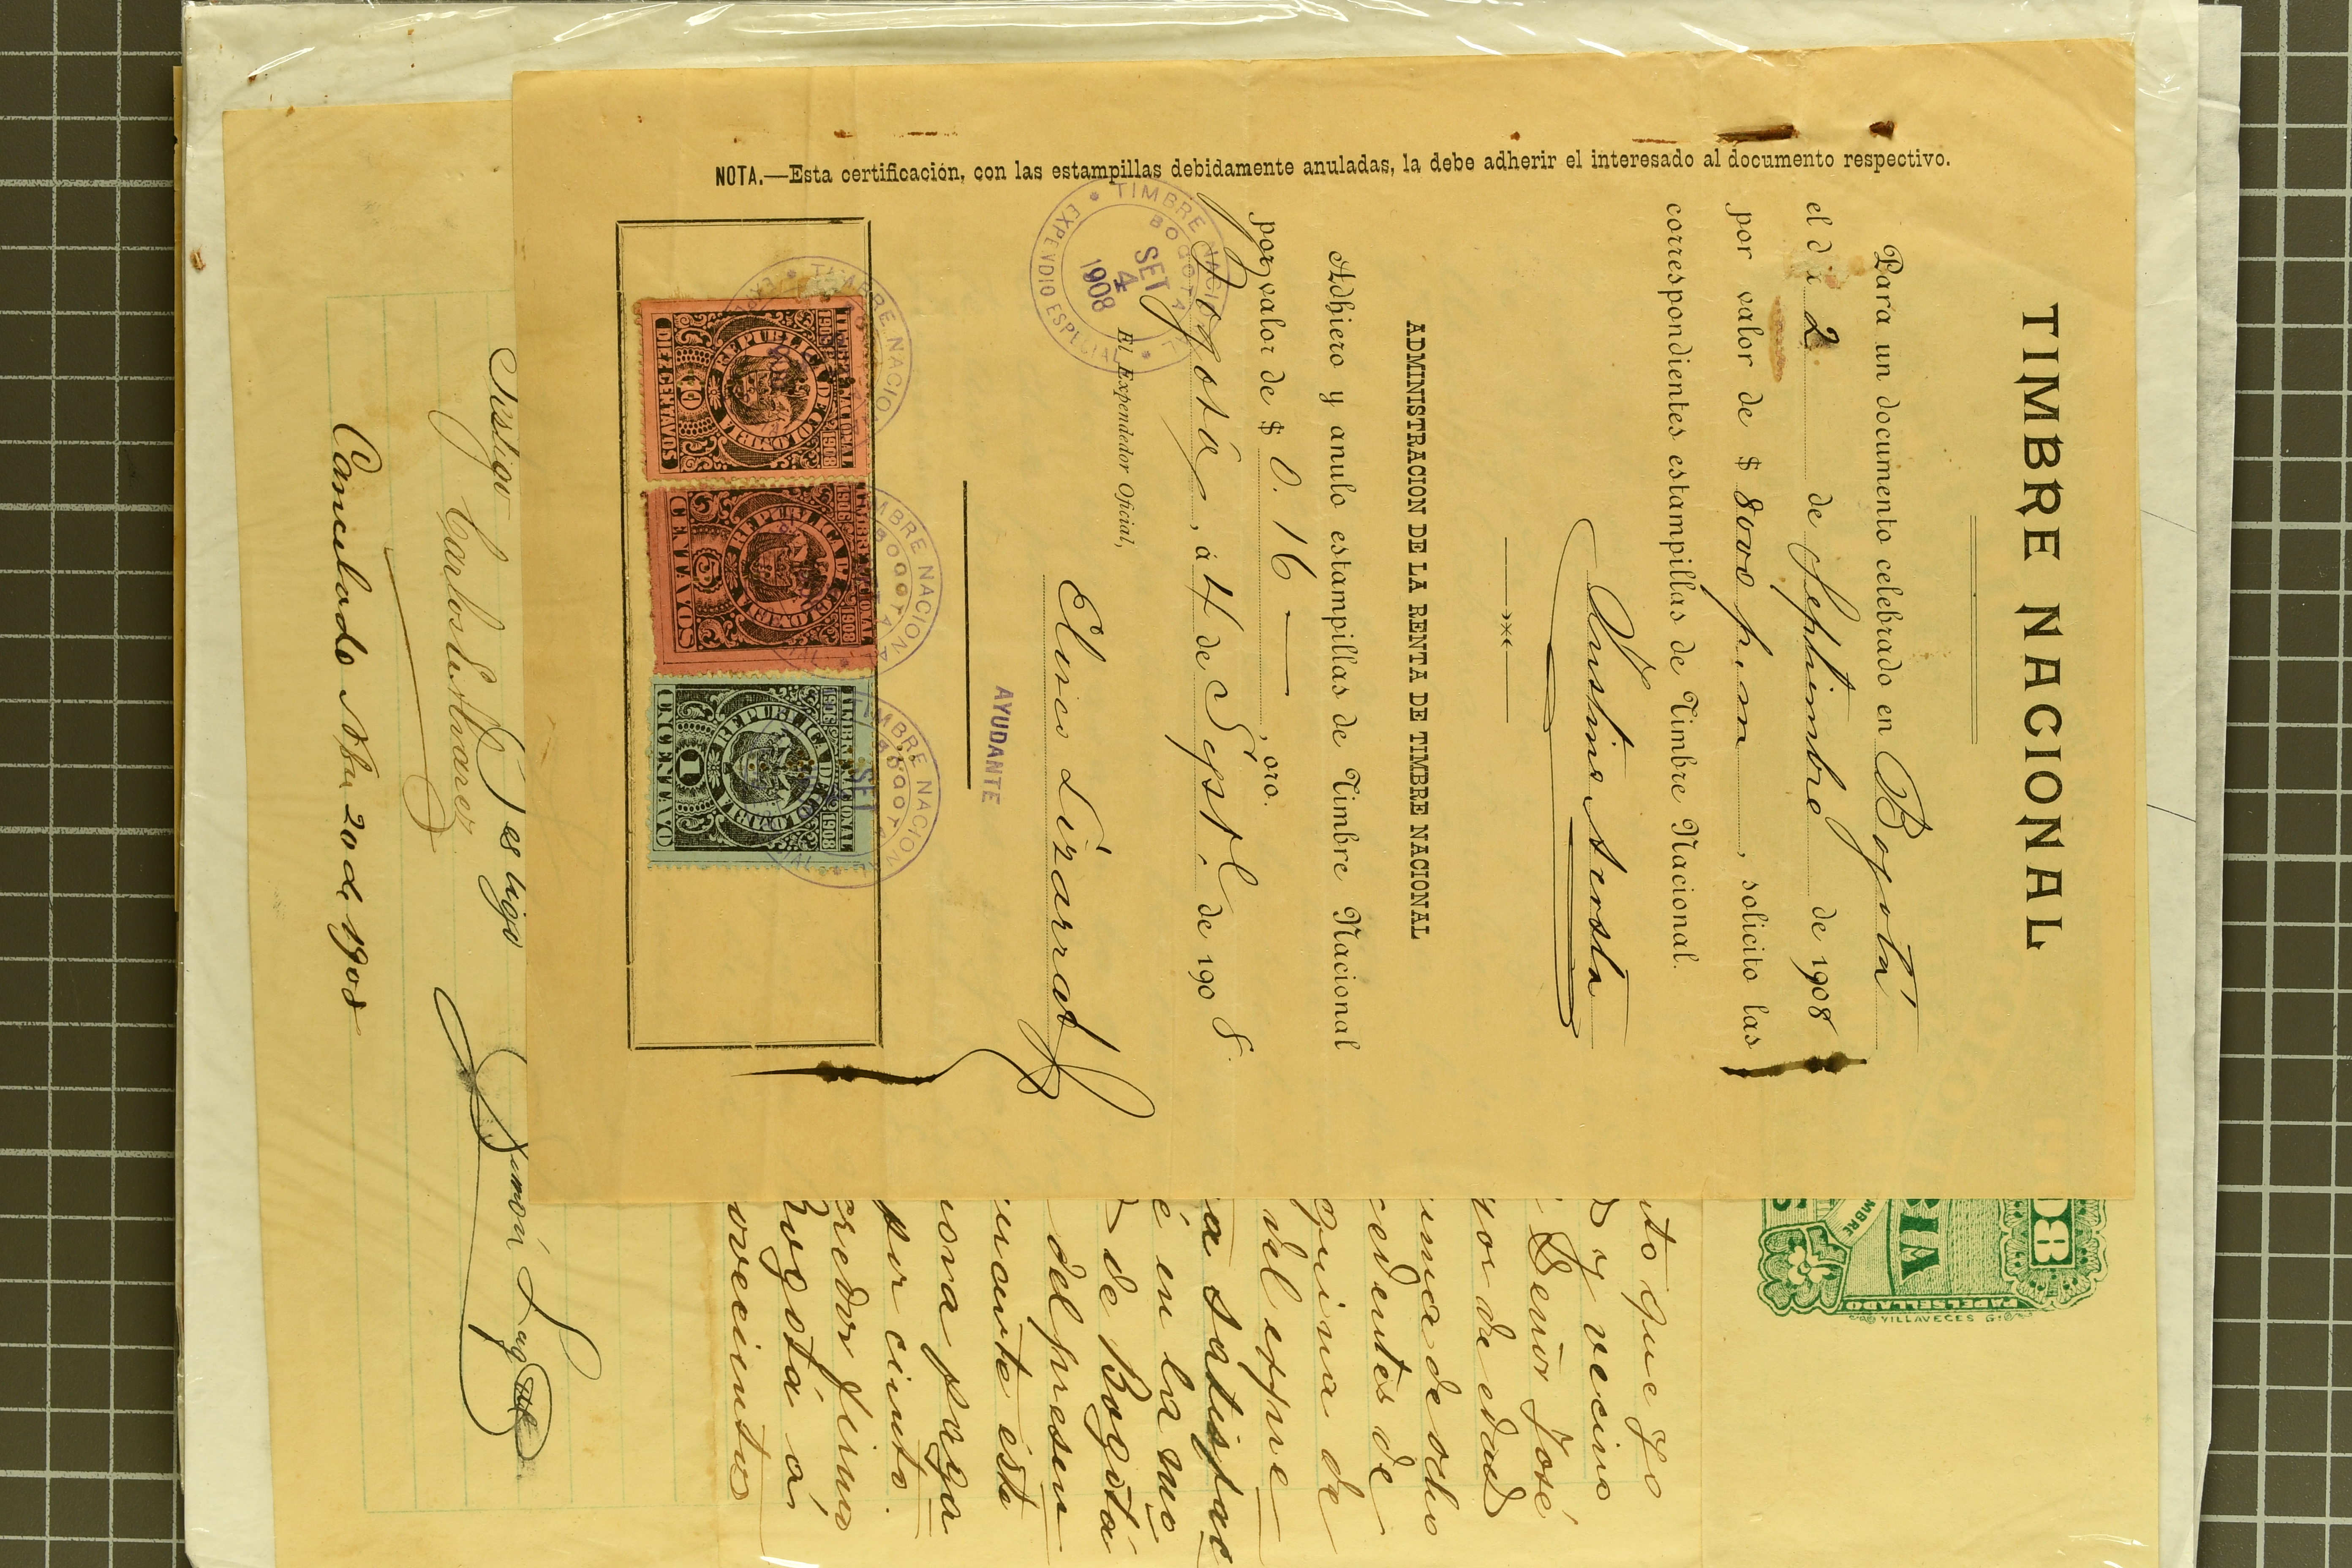 TIMBRE NACIONAL
Para un documento celebrado en Bogotá
el dí 2 de Septiembre de 1908
por valor de $ 8000 p.m, solicito las
correspondientes estampillas de Timbre Nacional.
ADMINISTRACION DE LA RENTA DE TIMBRE NACIONAL
Adhiero y anulo estampillas de Timbre Nacional
por valor de $ 0.16 —, oro.
Bogotá, á 4 de Sept. de 1908.
El Expendedor Oficial,
TIMBRE NACIONAL
BOGOTA
SET 4 1908
EXPENDIO ESPECIAL
AYUDANTE
TIMBRE NACIONAL
1908
REPUBLICA DE COLOMBIA
10
DIEZ CENTAVOS
TIMBRE NACIONAL
1908
REPUBLICA DE COLOMBIA
5
CENTAVOS
TIMBRE NACIONAL
1908
REPUBLICA DE COLOMBIA
1
UN CENTAVO
NOTA.—Esta certificación, con las estampillas debidamente anuladas, la debe adherir el interesado al documento respectivo.
08
PAPEL SELLADO
VILLAVECES
nto que yo
y vecino
Señor José
yor de edad
uma de ocho
cedentes de
quina de
del expre
a satisfac
é en la mo
de Bogotá
del presen
urante esta
ona paga
por ciento.
creedor firmo
Bogotá á
ovecientos
Testigo
Testigo
Carlos
Simón
Cancelado Nbre 20 de 1908